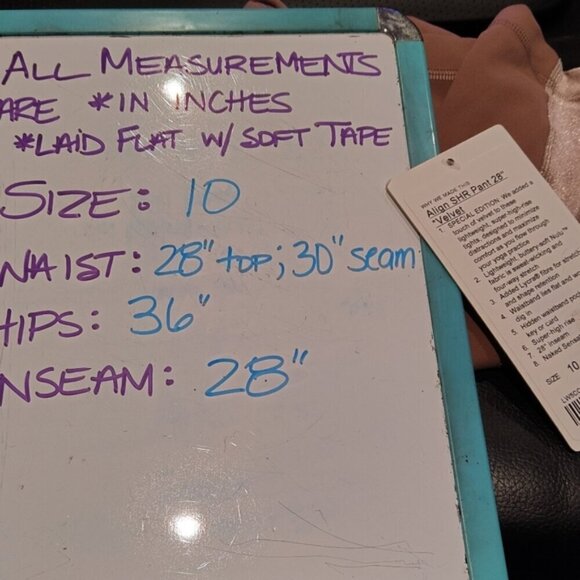 ALL MEASUREMENTS
ARE *IN INCHES
*LAID FLAT W/ SOFT TAPE
SIZE: 10
WAIST: 28" top; 30" seam
HIPS: 36"
INSEAM: 28"
WHY WE MADE THIS
Align SHR Pant 28"
*Velvet
1. SPECIAL EDITION: We added a
touch of velvet to these
lightweight, super-high-rise
tights, designed to minimize
distractions and maximize
comfort as you flow through
your yoga practice
2. Lightweight, buttery-soft Nulu™
fabric is sweat-wicking and
four-way stretch
3. Added Lycra® fibre for stretch
and shape retention
4. Waistband lies flat and won't
dig in
5. Hidden waistband
key or card
6. Super-high rise
7. 28" inseam
8. Naked
SIZE 10